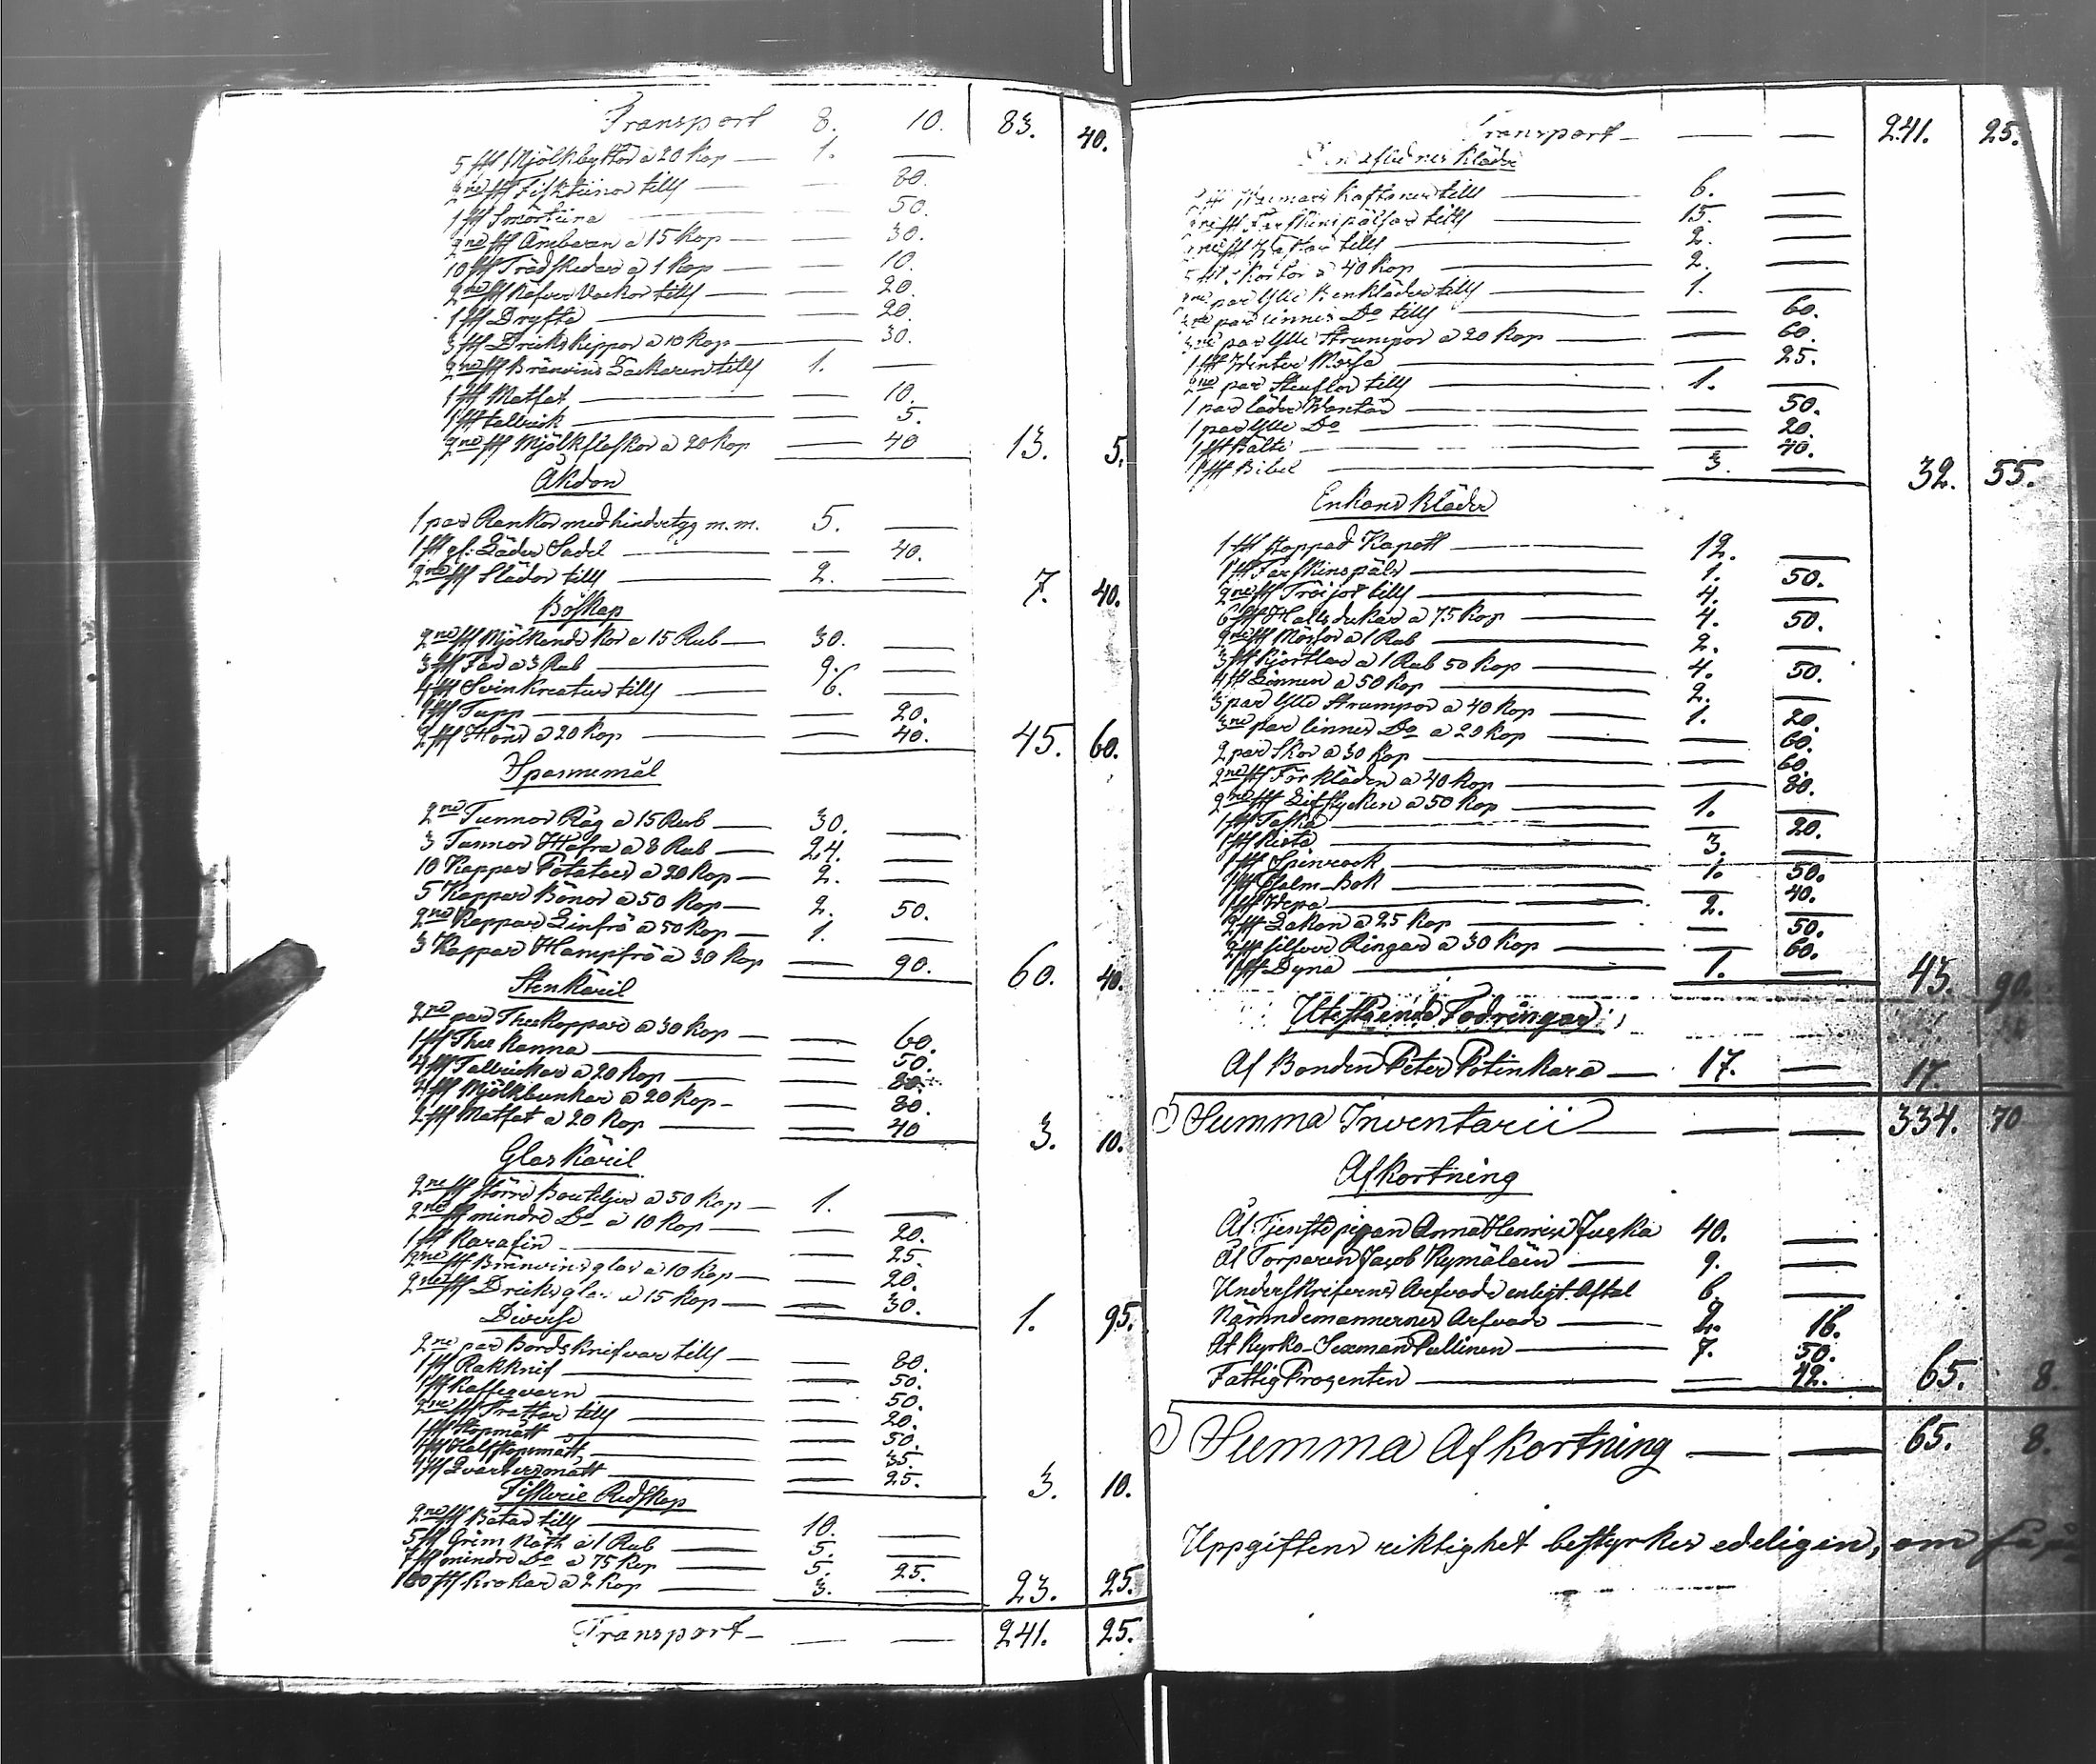 Transport 8. 10. 83. 40.
5 st Mjölkbyttor a 20 Kop — 1. —
2ne st Fisktiinor till — — 80.
1 st Smörtiina — 50.
2ne st Ämbaren a 15 Kop — — 30.
10 st Trädskedar a 1 Kop — — 10.
2ne st Näfver Vackor till — — 20.
1 st Dryfte — 20.
3 st Dricks Kippor a 10 Kop — — 30.
2ne st Bränvins Lackaren till 1. —
1 st Matfat — — 10.
1 st talrick — — 5.
2ne st Mjölkflaskor a 20 Kop — 40 13. 5.
Åkdon
1 par Rankor med hindertyg m.m. 5. —
1 st gl: Läder Sadel — — 40.
2ne st Slädor till — 2. — 7. 40.
Boskap
2ne st Mjölkande Kor a 15 Rub — 30. —
3 st Får a 3 Rub — 9. —
4 st Svinkreatur till — 6. —
1 st Tupp — — 20.
2 st Höns a 20 Kop — — 40. 45. 60.
Spannemål
2ne Tunnor Råg a 15 Rub — 30. —
3 Tunnor Hafra a 8 Rub — 24. —
10 Kappar Potater a 20 Kop — 2. —
5 Kappar Bönor a 50 Kop — 2. 50.
2ne Kappar Linfrö a 50 Kop — 1. —
3 Kappar Hampfrö a 30 Kop — 90. 60. 40.
Stenkäril
2ne par Theekoppar a 30 Kop — — 60.
1 st Thee Kanna — — 50.
4 st Talrickar a 20 Kop — — 80.
4 st Mjölkbunkar a 20 Kop — — 80.
2 st Matfat a 20 Kop — — 40 3. 10.
Glas Käril
2ne st större Bouteljer a 50 Kop — 1. —
2ne st mindre Do a 10 Kop — — 20.
1 st Karafin — — 25.
2ne st Bränvins glas a 10 Kop — — 20.
2ne st Dricks glas a 15 Kop — — 30. 1. 95.
Diverse
2ne par Bordsknifvar till — — 80.
1 st Rakknif — — 50.
1 st Kaffeqvarn — — 50.
2ne st Trattar till — — 20.
1 st Stopmått — — 50.
1 st Halfstopsmått — — 35.
1 st Qvartersmått — — 25. 3. 10.
Fiskerie Redskap
2ne st Båtar till — 10. —
5 st Grim Nöth a 1 Rub — 5. —
7 st mindre Do a 75 Kop — 5. 25.
150 st Krokar a 2 Kop — 3. — 23. 25.
Transport — — — 241. 25.
Transport — — — 241. 25.
Kläder
Kaftaner till — 6. —
Fårskinspälsar till — 15. —
till — 2. —
5 st Skjortor a 40 Kop — 2. —
2ne par Ylle Benkläder till — 1. —
par linnes Do till — — 60.
3ne par Ylle Strumpor a 20 Kop — — 60.
1 st Vinter Mössa — — 25.
2ne par Stenflor till — 1. —
1 par läder Vantar — — 50.
1 par Ylle Do — — 20.
1 st Bälte — — 40.
1 st Bibel — 3. — 32. 55.
Enkans Kläder
1 st stoppad Kapott — 12. —
1 st Fårskinspäls — 1. 50.
2ne st Tröijor till — 4. —
6 st Halls dukar a 75 Kop — 4. 50.
2ne st Mössor a 1 Rub — 2. —
3 st Kjortlar a 1 Rub 50 Kop — 4. 50.
4 st Linnen a 50 Kop — 2. —
3 par Ylle Strumpor a 40 Kop — 1. 20.
3ne par linnes Do a 20 Kop — — 60.
2 par Skor a 30 Kop — — 60.
2ne st Förkläden a 40 Kop — — 80.
2ne st Lifstycken a 50 Kop — 1. —
1 st Taska — — 20.
1 st Kista — 3. —
1 st Spinrock — 1. 50.
1 st Psalm-Bok — — 40.
1 st Wepa — 2. —
2 st Lakan a 25 Kop — — 50.
2 st silfver Ringar a 30 Kop — — 60.
1 st Dyna — 1. — 45. 90.
Utestående Fodringar
Af Bonden Peter Potinkara — 17. — 17. —
Summa Inventarii — — — 334. 70
Afkortning
Åt Tjenstepigan Anna Henrica Juska 40. —
Åt Torparen Jacob Kymäläin — 9. —
Underskrifvens Arfvode enligt Aftal 6. —
Nämndemannernes Arfvode — 2. 16.
At Kyrko-Sexman Pullinen — 7. 50.
Fattig Prozenten — — 42. 65. 8.
Summa Afkortning — — 65. 8.
Uppgiftens riktighet bestyrkes edeligin, om så